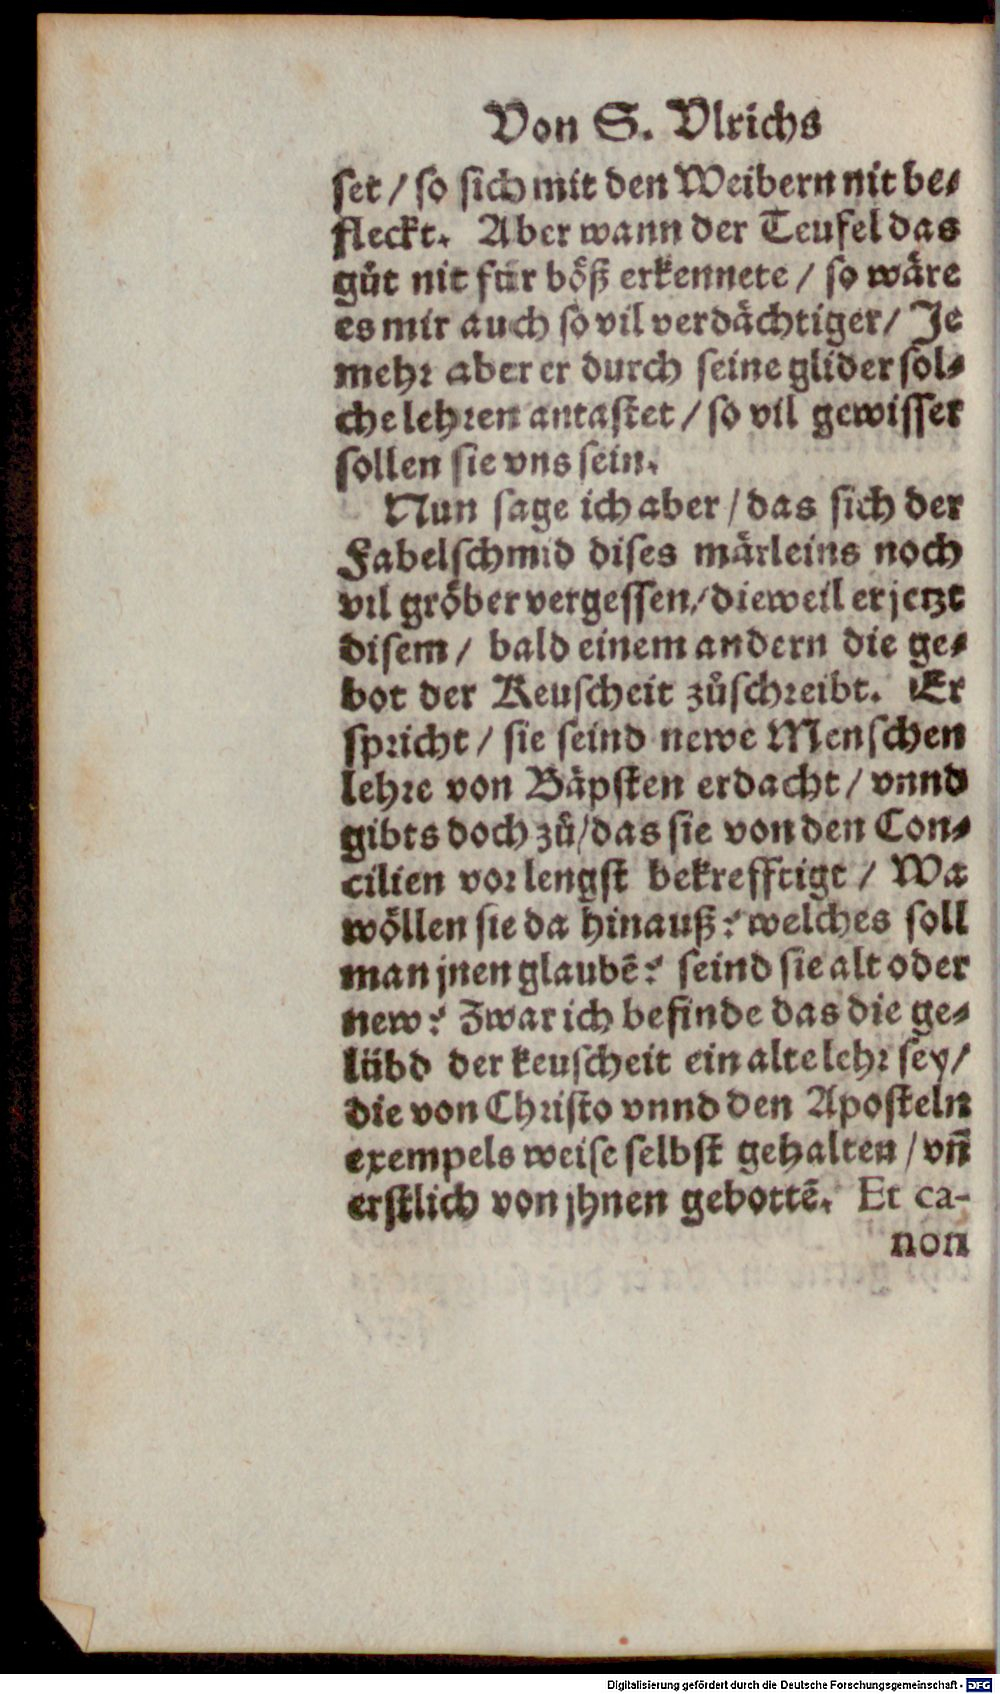 Von S. Vlrichs
set / so sich mit den Weibern nit be⸗
fleckt. Aber wann der Teufel das
gůt nit für böß erkennete / so wäre
es mir auch so vil verdächtiger / Je
mehr aber er durch seine glider sol⸗
che lehren antastet / so vil gewisser
sollen sie vns sein.
Nun sage ich aber / das sich der
Fabelschmid dises märleins noch
vil gröber vergessen / dieweil er jetzt
disem / bald einem andern die ge⸗
bot der Keuscheit zůschreibt. Er
spricht / sie seind newe Menschen
lehre von Bäpsten erdacht / vnnd
gibts doch zů / das sie von den Con⸗
cilien vor lengst bekrefftigt / Wa
wöllen sie da hinauß? welches soll
man jnen glaubē? seind sie alt oder
new? Zwar ich befinde das die ge⸗
lübd der keuscheit ein alte lehr sey /
die von Christo vnnd den Aposteln
exempels weise selbst gehalten / vñ
erstlich von jhnen gebottē. Et ca-
non
Digitalisierung gefördert durch die Deutsche Forschungsgemeinschaft - DFG